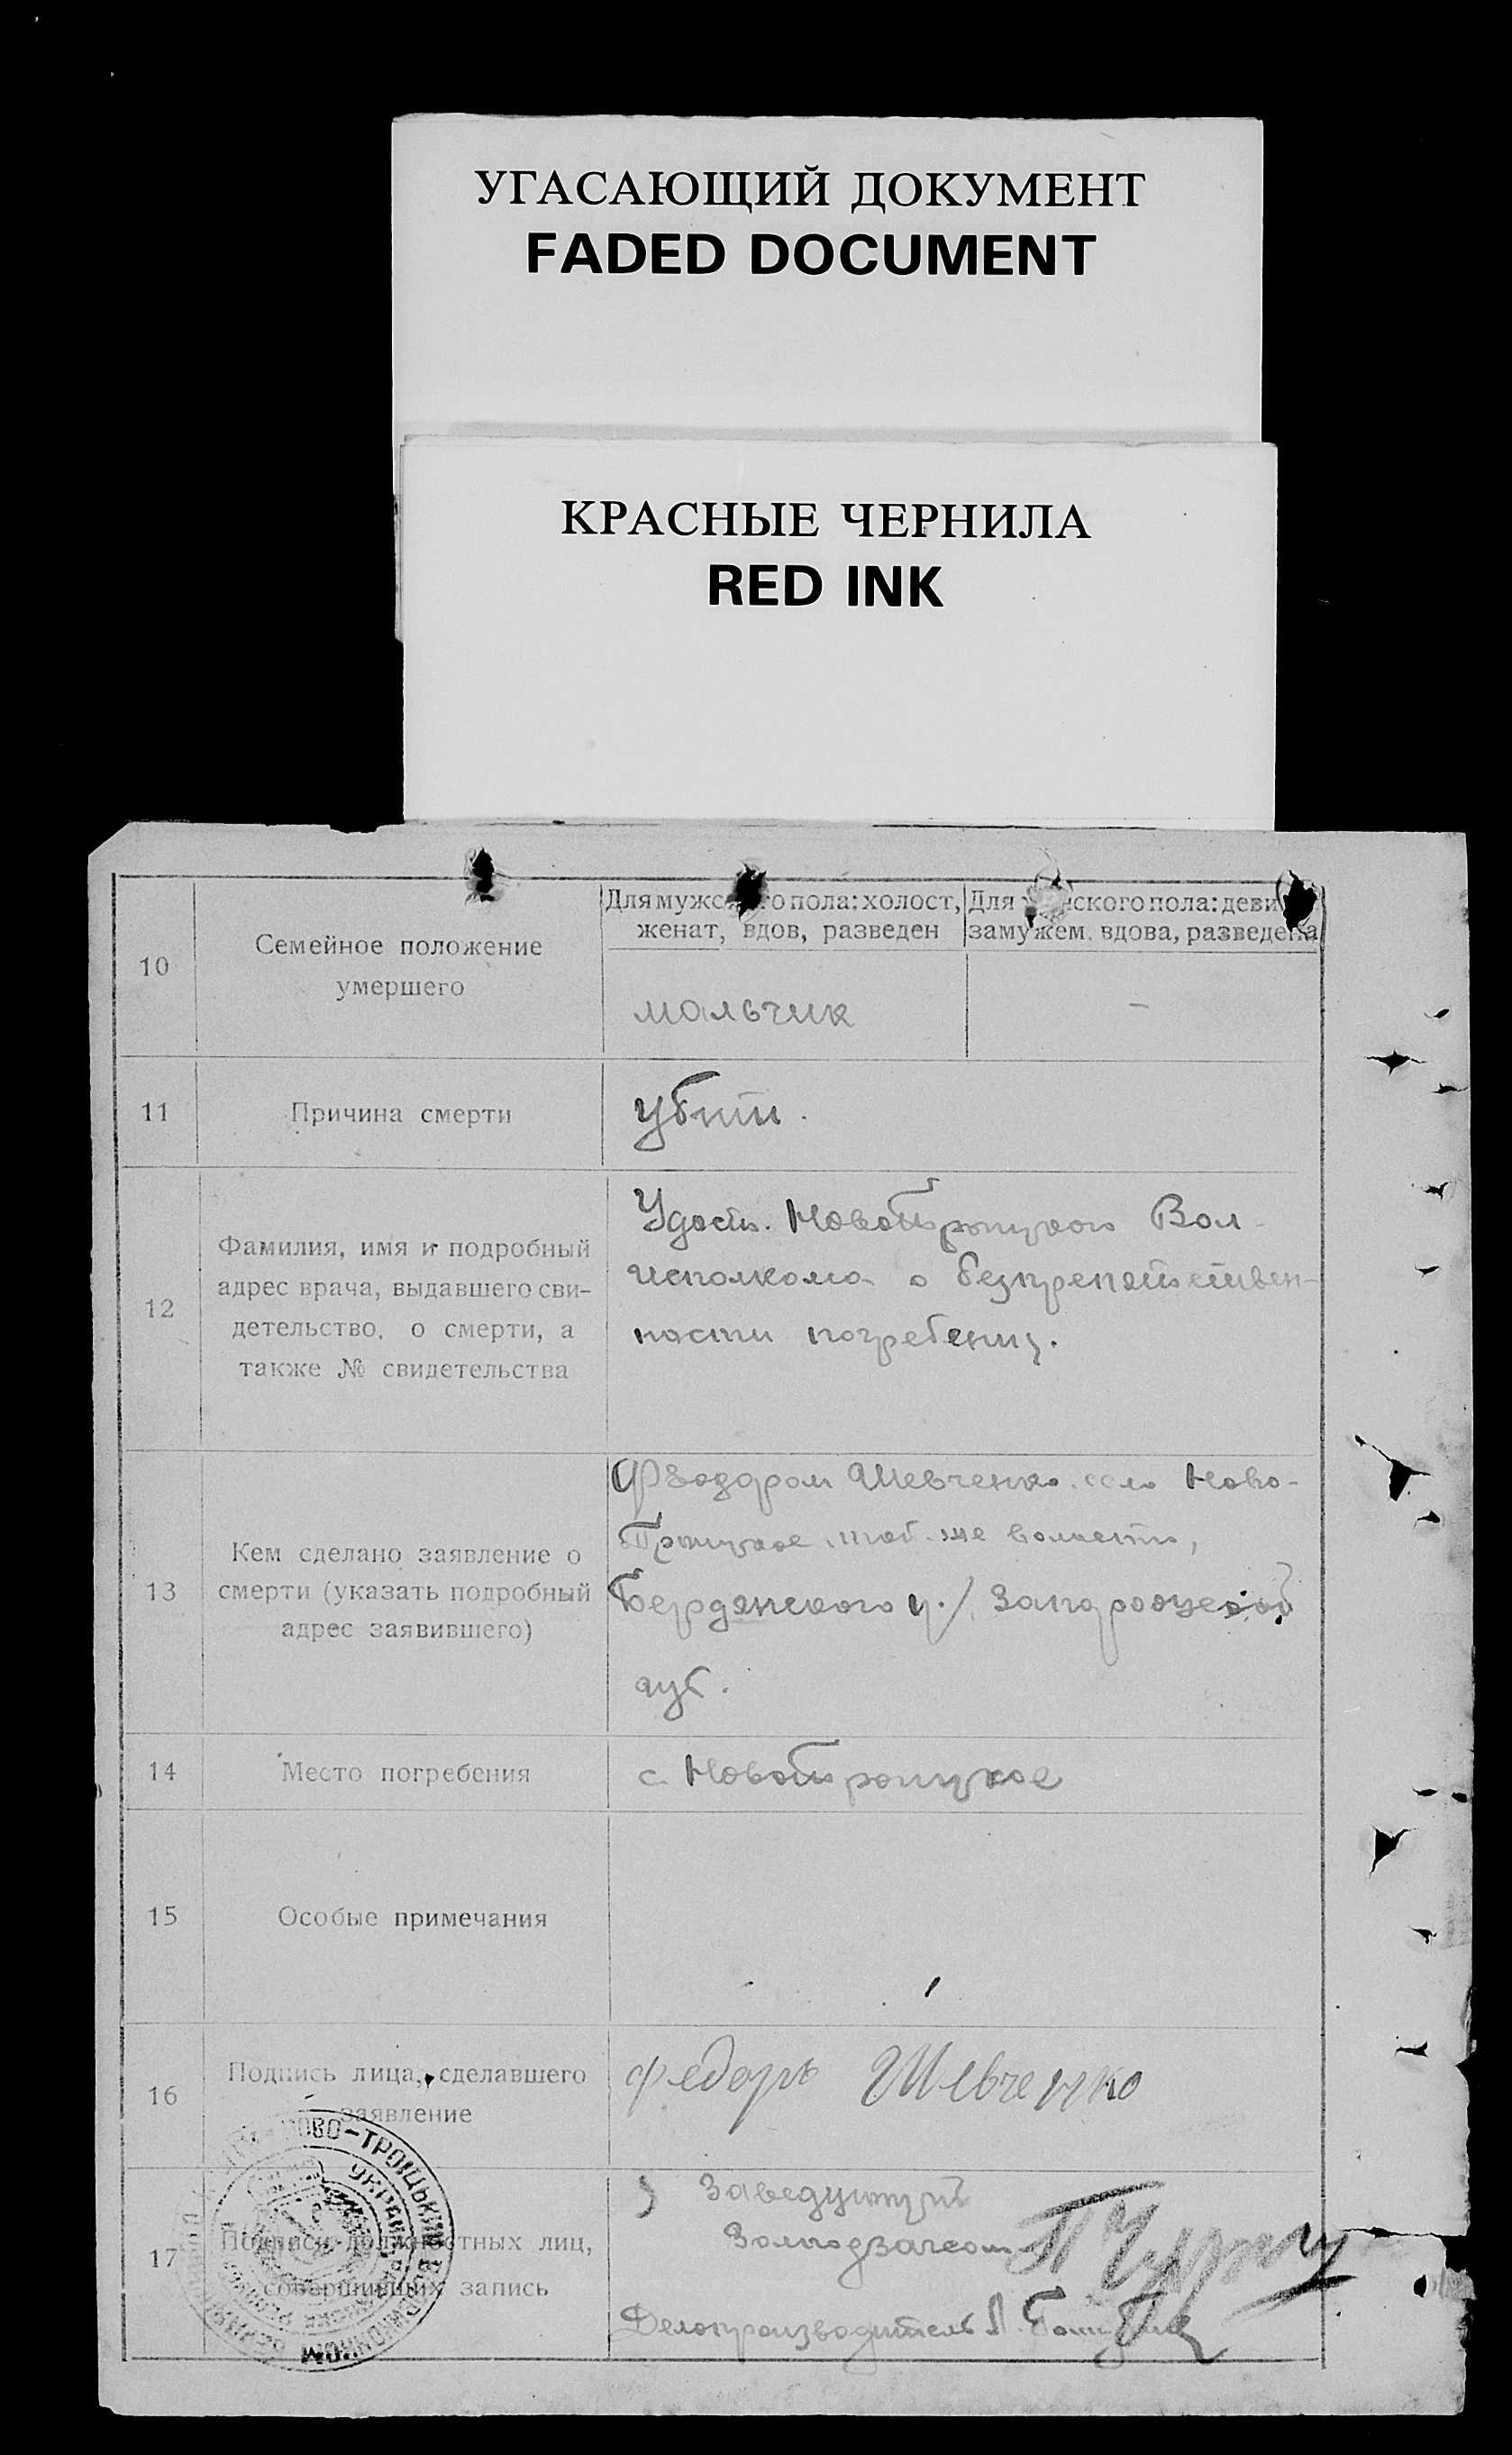 УГАСАЮЩИЙ ДОКУМЕНТ
FADED DOCUMENT
КРАСНЫЕ ЧЕРНИЛА
RED INK
10
Семейное положение
умершего
Для мужс го пола: холост,
женат, вдов, разведен
Для ского пола: деви
замужем, вдова, разведена
мальчик
–
11
Причина смерти
убит.
12
Фамилия, имя и подробный
адрес врача, выдавшего сви-
детельство, о смерти, а
также № свидетельства
Удост. Новотроицкого Вол-
исполкома о безпрепятствен-
ности погребения.
13
Кем сделано заявление о
смерти (указать подробный
адрес заявившего)
Феодором Шевченко, село Ново-
Троицкое, той-же волости,
Бердянского у./ Запорожской
губ.
14
Место погребения
с. Новотроицкое
15
Особые примечания
16
Подпись лица, сделавшего
заявление
Федоръ Шевченко
17
Подписи должностных лиц,
совершивших запись
Заведующий
Делопроизводитель
НОВО-ТРОІЦЬКИЙ